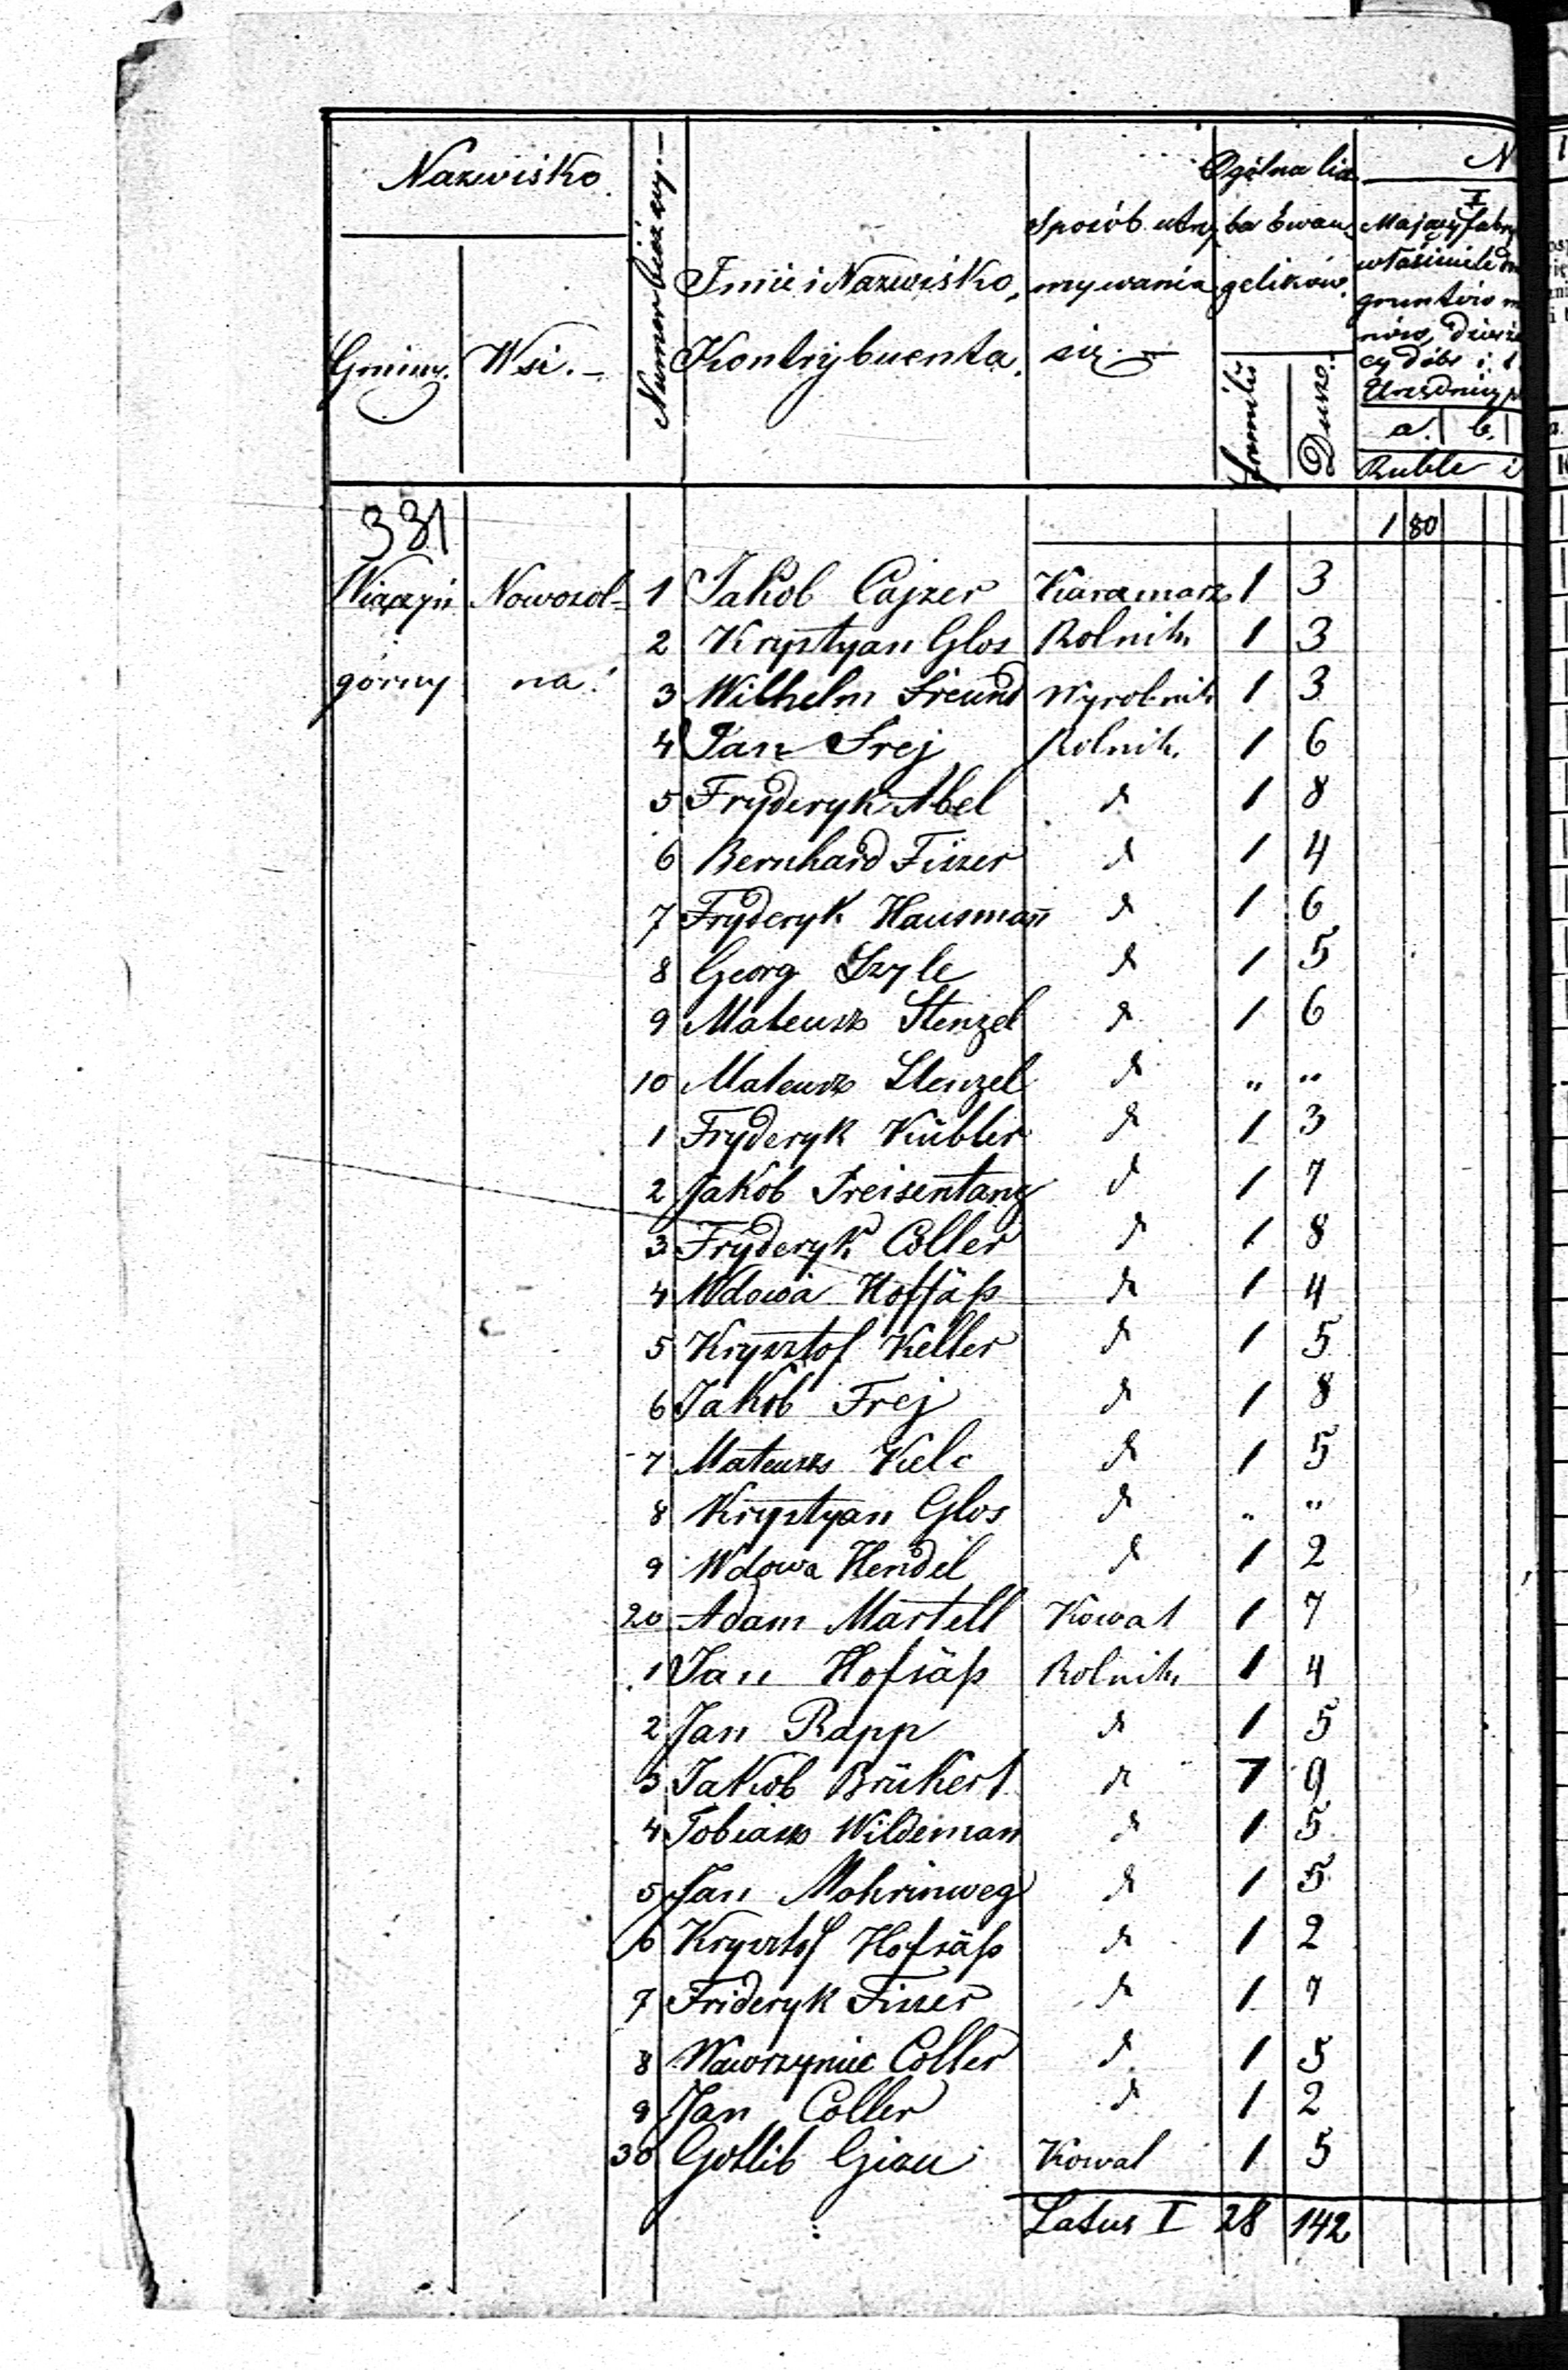 Nazwisko
Gminy. Wsi.
Numer bieżący.
Imie i Nazwisko
Kontrybuenta.
Sposób utrzymywania się.
Ogólna liczba Ewangelików.
Familii Dusz.
N
I
a. b.
Ruble i
331 1 80
Wiązyń Nowosol- 1 Jakob Cajzer Karczmarz 1 3
2 Krystyan Glos Rolnik 1 3
górny na. 3 Wilhelm Freund Wyrobnik 1 3
4 Jan Frej Rolnik. 1 6
5 Fryderyk Abel d 1 8
6 Bernhard Fiszer d 1 4
7 Fryderyk Hausmañ d 1 6
8 Georg Szyle d 1 5
9 Mateusz Stenzel d 1 6
10 Mateusz Stenzel d " "
1 Fryderyk Kübler d 1 3
2 Jakob Freisentang d 1 7
3 Fryderyk Coller d 1 8
4 Wdowa Hoffäß d 1 4
5 Krysztof Keller d 1 5
6 Jakób Frej d 1 8
7 Mateusz Kielc d 1 5
8 Krystyan Glos d " "
9 Wdowa Hendel d 1 2
20 Adam Martell Kowal 1 7
1 Jan Hofsäß Rolnik 1 4
2 Jan Rapp d 1 5
3 Jakob Brükert d 1 9
4 Tobiasz Wildeman d 1 5
5 Jan Mohrinweg d 1 5
6 Krysztof Hofsäß d 1 2
7 Frideryk Fiszer d 1 7
8 Wawrzyniec Coller d 1 5
9 Jan Coller d 1 2
30 Gottlib Gizeu Kowal 1 5
Latus I 28 142